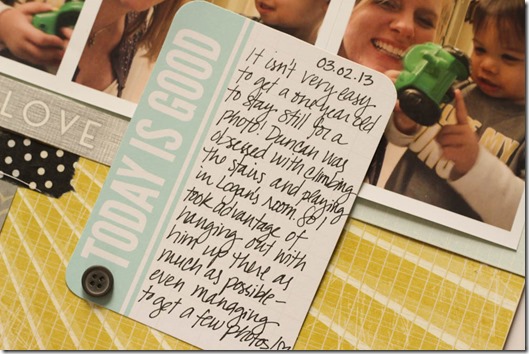 LOVE
TODAY IS GOOD
03.02.13
It isn't very easy
to get a one year old
to stay still for a
photo! Duncan was
obsessed with climbing
the stairs and playing
in Logan's room. So I
took advantage of
hanging out with
him up there as
much as possible-
even managing
to get a few photos!